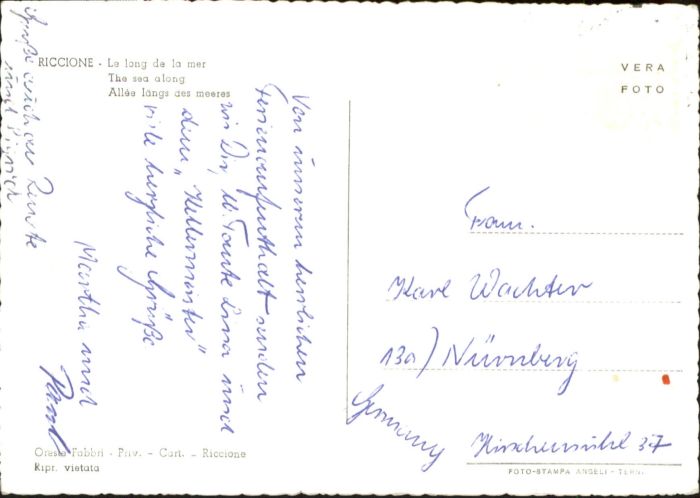 RICCIONE - Le long de la mer
The sea along
Allée längs des meeres
VERA
FOTO
Von unserem herrlichen
Ferienaufenthalt senden
wir Dir, lb. Tante Lina und
dem "Kellermeister"
viele herzliche Grüße
Martha und
Grüße auch an Tante
und
Fam.
Karl Wachter
13a) Nürnberg
Hirschenmühl 37
Germany
Oreste Fabbri - Priv. - Cart. - Riccione
Ripr. vietata
FOTO-STAMPA ANGELI - TERNI